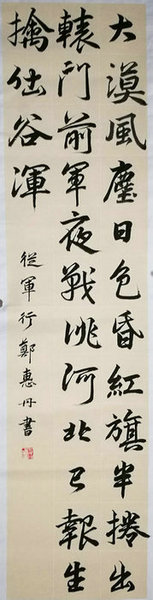 大漠風塵日色昏紅旗半捲出
轅門前軍夜戰洮河北已報生
擒吐谷渾
從軍行鄭惠丹書